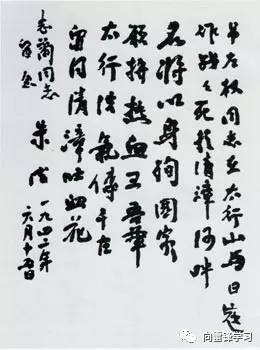 吊左权同志在太行山与日寇
作战々死于清漳河畔
名将以身殉国家
愿拼热血卫吾华
太行浩气传千古
留得清漳吐血花
志兰同志
留念
朱德
一九四二年
六月十五日
向雷锋学习